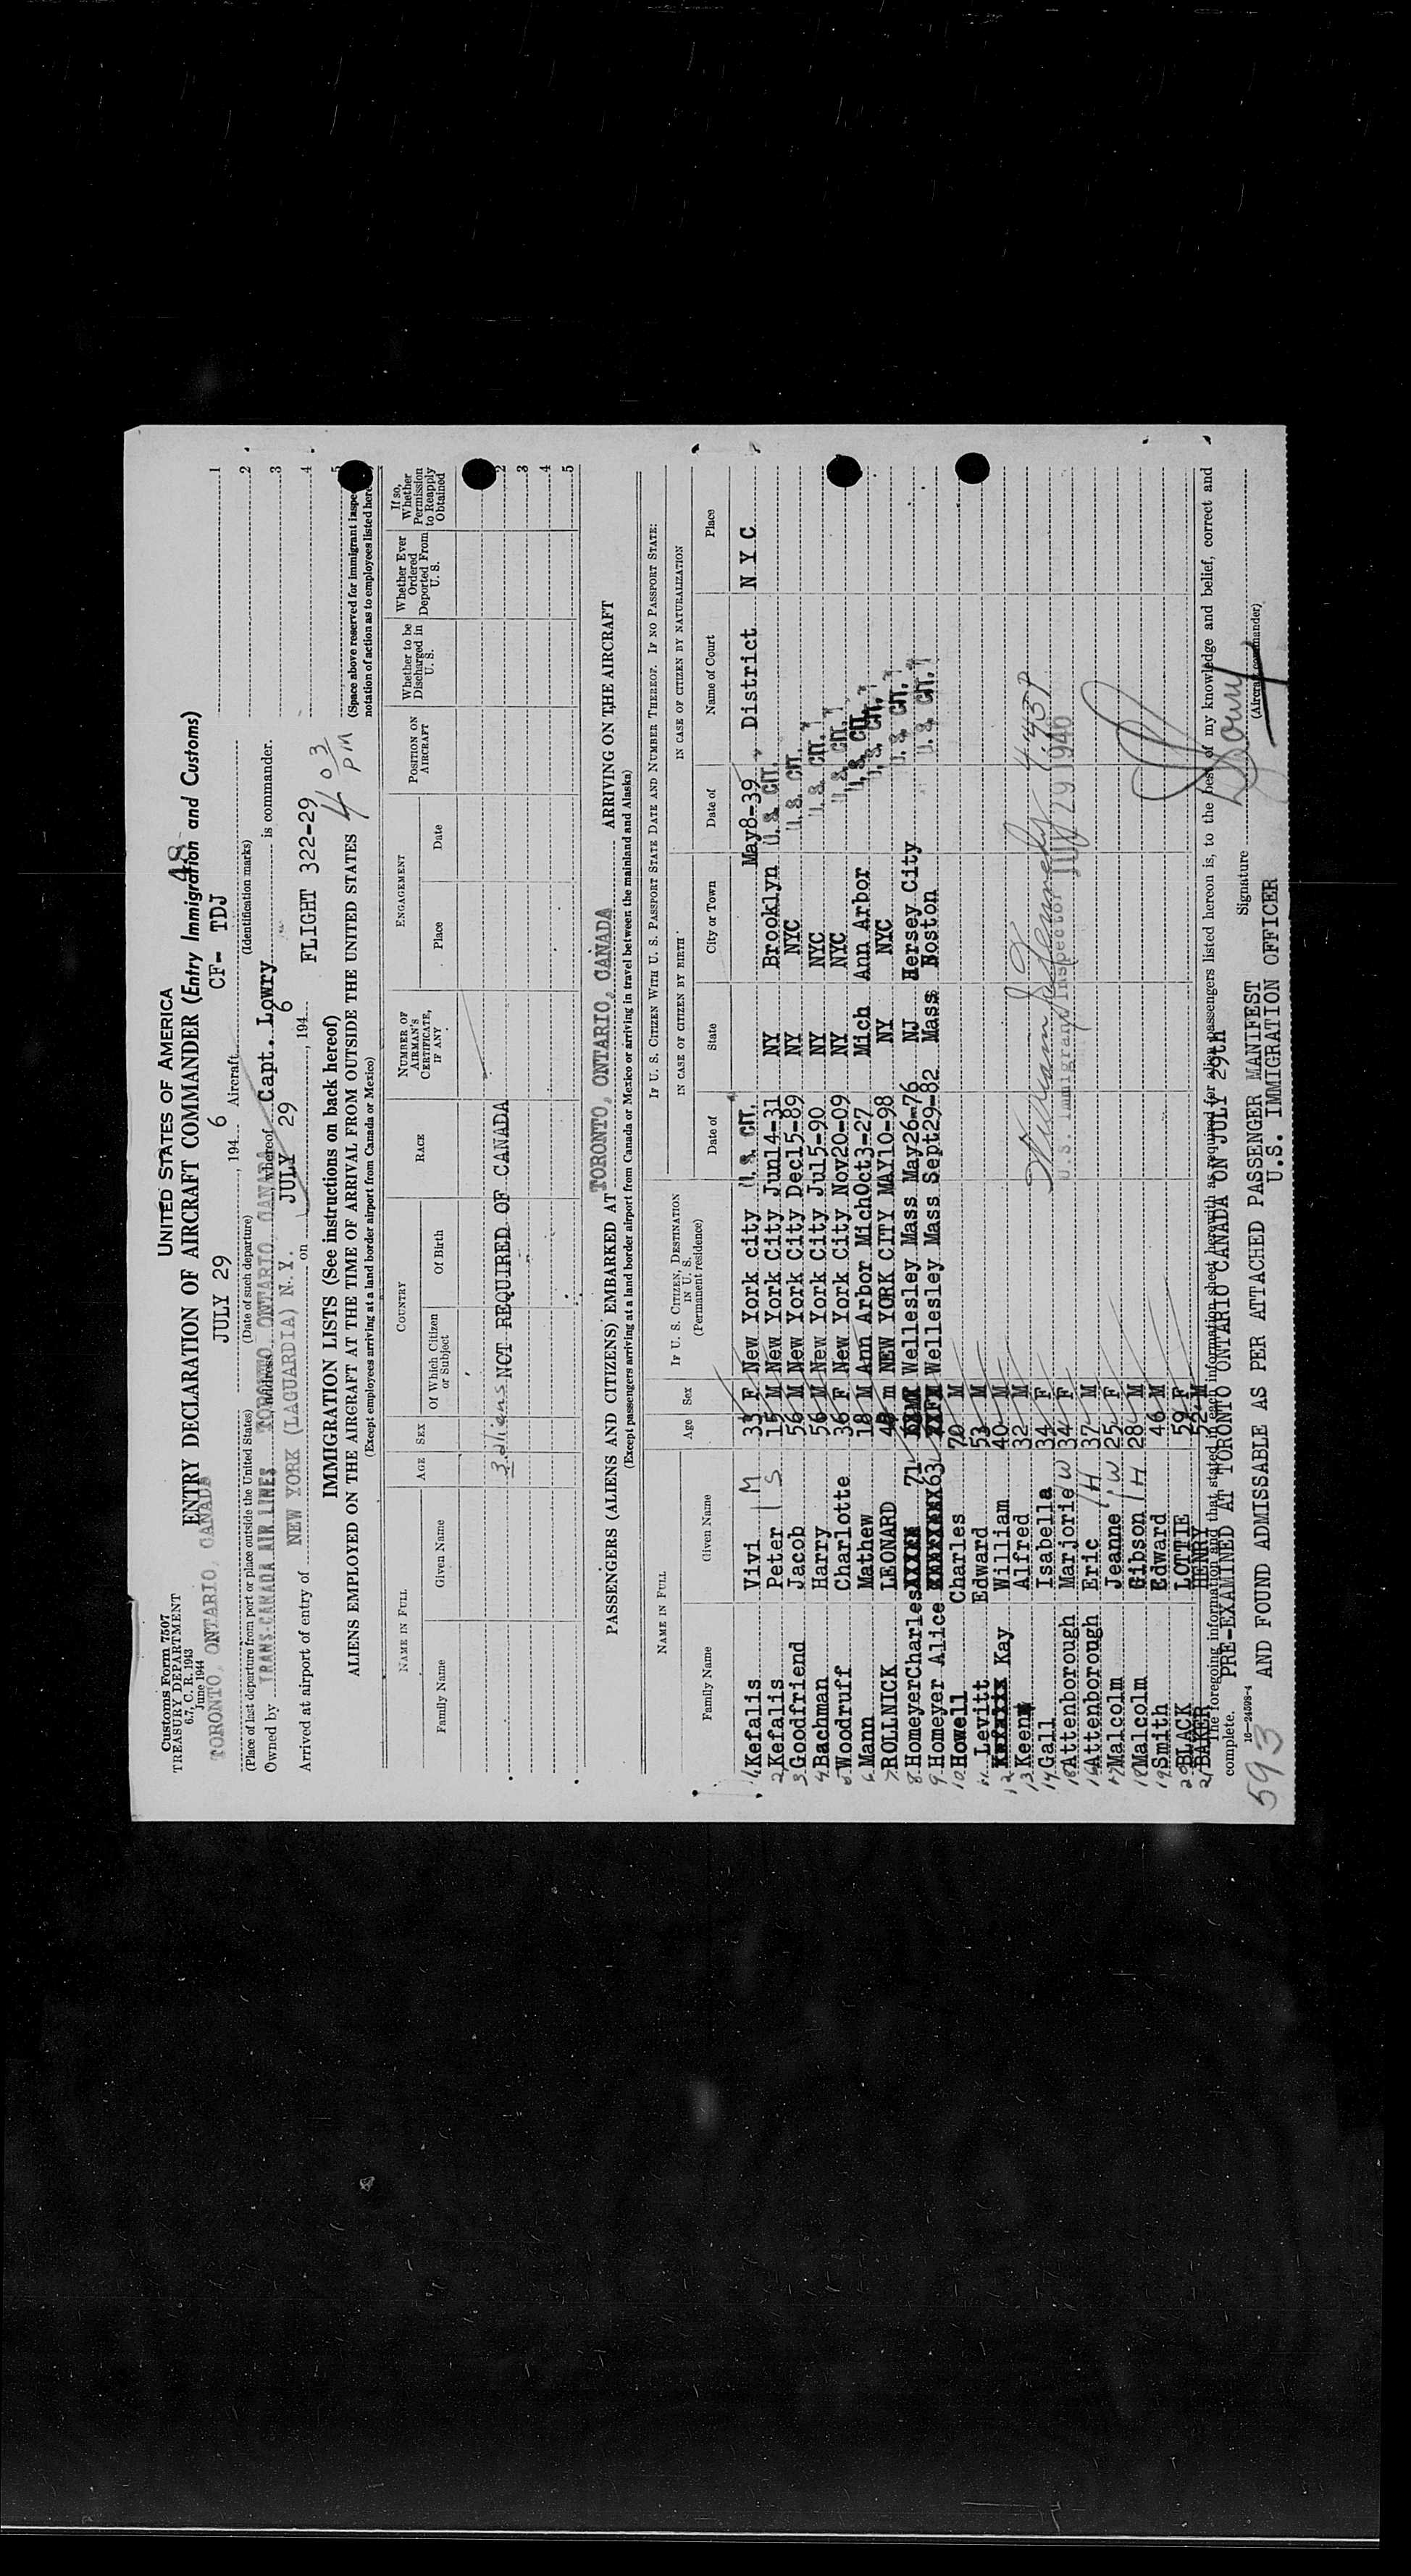 Customs Form 7507
TREASURY DEPARTMENT
6.7, C. R. 1943
June 1944
UNITED STATES OF AMERICA
ENTRY DECLARATION OF AIRCRAFT COMMANDER (Entry Immigration and Customs)
48
TORONTO, ONTARIO, CANADA JULY 29, 194 6 Aircraft CF- TDJ
(Place of last departure from port or place outside the United States) (Date of such departure) (Identification marks)
Owned by TRANS-CANADA AIR LINES, Address TORONTO, ONTARIO, CANADA, whereof Capt. Lowry is commander.
Arrived at airport of entry of NEW YORK (LAGUARDIA) N.Y. on JULY 29, 194 6 FLIGHT 322-29
IMMIGRATION LISTS (See instructions on back hereof)
ALIENS EMPLOYED ON THE AIRCRAFT AT THE TIME OF ARRIVAL FROM OUTSIDE THE UNITED STATES 4 03 PM
(Except employees arriving at a land border airport from Canada or Mexico)
1
2
3
4
5
(Space above reserved for immigrant
notation of action as to employees listed
NAME IN FULL AGE SEX COUNTRY RACE NUMBER OF AIRMAN'S CERTIFICATE, IF ANY ENGAGEMENT POSITION ON AIRCRAFT Whether to be Discharged in U. S. Whether Ever Ordered Deported From U. S. If so, Whether Permission to Reapply Obtained
Family Name Given Name Of Which Citizen or Subject Of Birth Place Date
3 aliens NOT REQUIRED OF CANADA 2
3
4
5
PASSENGERS (ALIENS AND CITIZENS) EMBARKED AT TORONTO, ONTARIO, CANADA ARRIVING ON THE AIRCRAFT
(Except passengers arriving at a land border airport from Canada or Mexico or arriving in travel between the mainland and Alaska)
NAME IN FULL Age Sex IF U. S. CITIZEN, DESTINATION IN U. S. (Permanent residence) IF U. S. CITIZEN WITH U. S. PASSPORT STATE DATE AND NUMBER THEREOF. IF NO PASSPORT STATE:
IN CASE OF CITIZEN BY BIRTH IN CASE OF CITIZEN BY NATURALIZATION
Family Name Given Name Date of State City or Town Date of Name of Court Place
1 Kefalis Vivi M 33 F New York city U. S. CIT. May8-39 District N Y C
2 Kefalis Peter S 15 M New York City Jun14-31 NY Brooklyn U. S. CIT.
3 Goodfriend Jacob 56 M New York City Dec15-89 NY NYC U. S. CIT.
4 Bachman Harry 56 M New York City Jul5-90 NY NYC U. S. CIT.
5 Woodruff Charlotte 36 F New York City Nov20-09 NY NYC U. S. CIT.
6 Mann Mathew 18 M Ann Arbor MichOct3-27 Mich Ann Arbor U. S. CIT.
7 ROLLNICK LEONARD 48 m NEW YORK CITY MAY10-98 NY NYC U. S. CIT.
8 HomeyerCharles 71 Wellesley Mass May26-76 NJ Hersey City U. S. CIT.
9 Homeyer Alice 63 Wellesley Mass Sept29-82 Mass Boston U. S. CIT.
10 Howell Charles 70 M
11 Levitt Edward 53 M
12 Kay William 40 M
13 Keen Alfred 32 M
14 Gall Isabella 34 F
15 Attenborough Marjorie W 34 F
16 Attenborough Eric H 37 M
17 Malcolm Jeanne W 25 F
18 Malcolm Gibson H 28 M
19 Smith Edward 46 M
20 BLACK LOTTIE 59 F
21 BAKER HENRY 52 M
4:43 P
U. S. Immigrant Inspector JUL 29 1946
The foregoing information and that stated in each information sheet herewith as required for alien passengers listed hereon is, to the best of my knowledge and belief, correct and
complete.
PRE-EXAMINED AT TORONTO ONTARIO CANADA ON JULY 29th
Signature Lowry
(Aircraft commander)
16—24698-4
AND FOUND ADMISSABLE AS PER ATTACHED PASSENGER MANIFEST
U.S. IMMIGRATION OFFICER
593